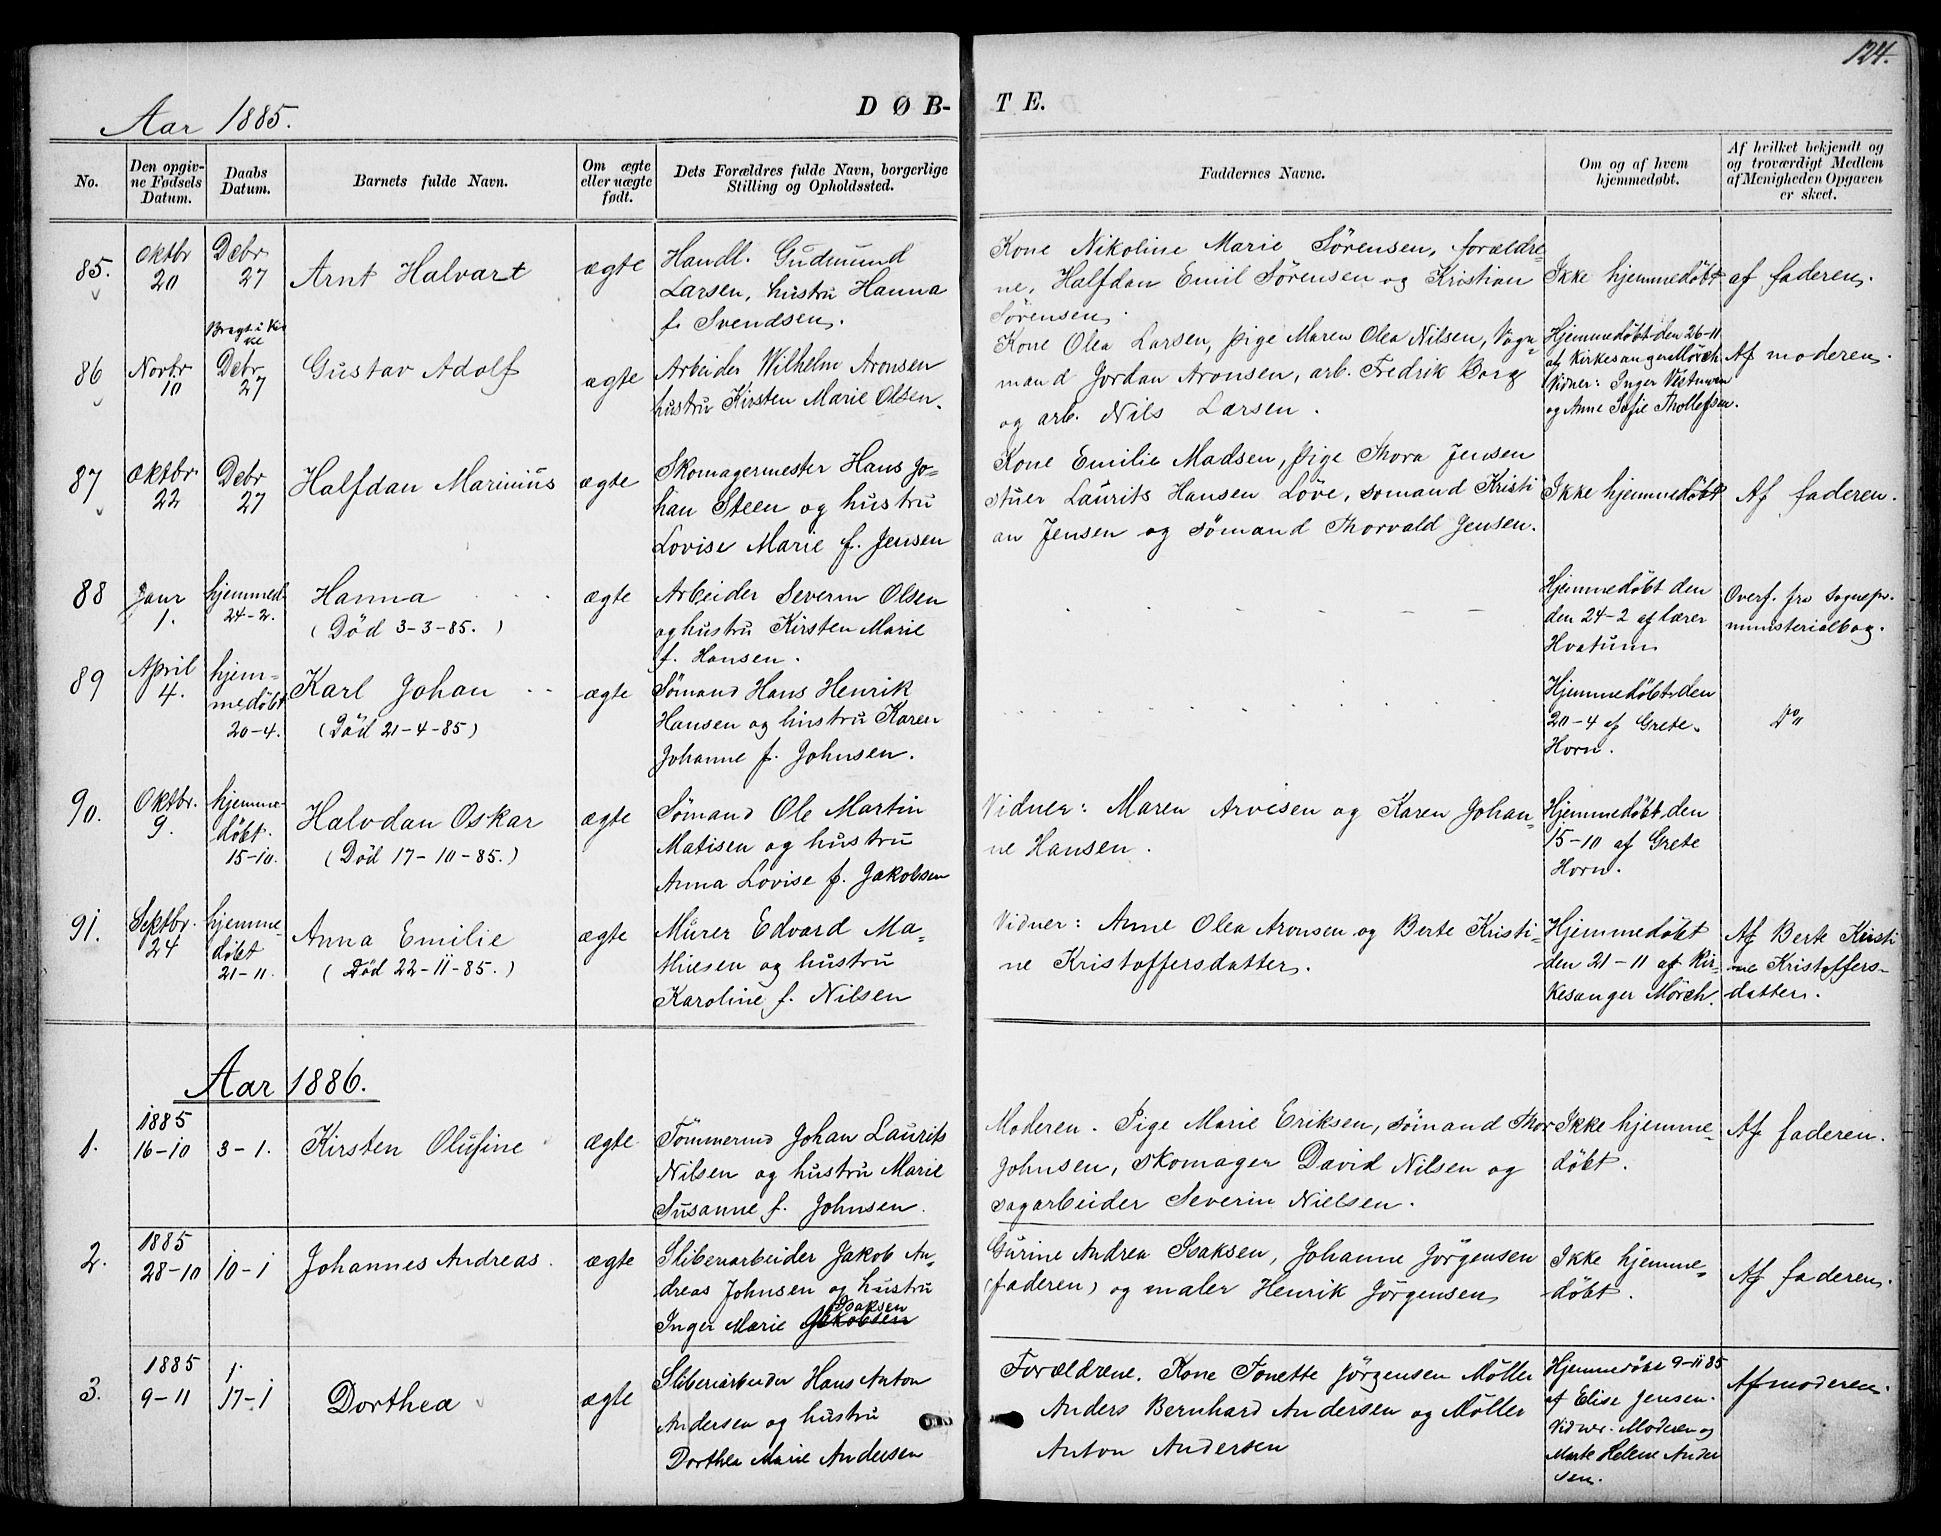 124.
Aar 1885.
DØB-
TE.
No.
Den opgiv-
ne Fødsels
Datum.
Daabs
Datum.
Barnets fulde Navn.
Om ægte
eller uægte
født.
Dets Forældres fulde Navn, borgerlige
Stilling og Opholdssted.
Faddernes Navne.
Om og af hvem
hjemmedøbt.
Af hvilket bekjendt og
og troværdigt Medlem
af Menigheden Opgaven
er skeet.
85.
Oktbr
20
Debr
27
Arnt Halvart
ægte
Handl. Gudmund
Larsen, hustru Hanna
f. Svendsen.
Kone Nikoline Marie Sørensen, forældre-
ne, Halfdan Emil Sørensen og Kristian
Sørensen.
Ikke hjemmedøbt
af faderen.
86
Novbr
10
Bragt i Kir
ke
Debr
27
Gustav Adolf
ægte
Arbeider Wilhelm Aronsen
hustru Kirsten Marie Olsen.
Kone Olea Larsen, pige Maren Olea Nilsen, Vogn-
mand Jordan Aronsen, arb. Fredrik Borg
og arb. Nils Larsen.
Hjemmedøbt den 26-11
af Kirkesanger Mørch
Vidner: Inger
og Anne Sofie Thollefsen.
Af moderen.
87
Oktbr.
22
Debr
27
Halfdan Marinius
ægte
Skomagermester Hans Jo-
han Steen og hustru
Lovise Marie f. Jensen
Kone Emilie Madsen, pige Thora Jensen
stuer Laurits Hansen Løve, sømand Kristi
an Jensen og sømand Thorvald Jensen.
Ikke hjemmedøbt
Af faderen.
88
Janr
1.
hjemmed.
24-2.
Hanna
(Død 3-3-85.)
ægte
Arbeider Severin Olsen
og hustru Kirsten Marie
f. Hansen.
Hjemmedøbt den
den 24-2 af lærer
Hvatum
Overf. fra Sognepr.
ministerialbog.
89
April
4.
hjem-
medøbt
20-4.
Karl Johan
(Død 21-4-85)
ægte
Sømand Hans Henrik
Hansen og hustru Karen
Johanne f. Johnsen.
Hjemmedøbt den
20-4 af Grete
Horn.
Do
90.
Oktbr.
9.
hjemme-
døbt.
15-10.
Halvdan Oskar
(Død 17-10-85.)
ægte
Sømand Ole Martin
Matisen og hustru
Anna Lovise f. Jakobsen
Vidner: Maren Arvesen og Karen Johan-
ne Hansen.
Hjemmedøbt den
15-10 af Grete
Horn.
91.
Septbr.
24
hjemme-
døbt
21-11.
Anna Emilie
(Død 22-11-85.)
ægte
Murer Edvard Ma-
thiesen og hustru
Karoline f. Nilsen
Vidner: Anne Olea Aronsen og Berte Kristi-
ne Kristoffersdatter.
Hjemmedøbt
den 21-11 af Kir-
kesanger Mørch.
Af Berte Kristi
ne Kristoffers-
datter.
Aar 1886.
1.
1885
16-10
3-1.
Kirsten Olufine
ægte
Tømmermd Johan Laurits
Nilsen og hustru Marie
Susanne f. Johnsen.
Moderen. Pige Marie Eriksen, sømand Thor
Johnsen, skomager David Nilsen og
sagarbeider Severin Nielsen.
Ikke hjemme-
døbt.
Af faderen.
2.
1885
28-10
10-1
Johannes Andreas.
ægte
Sliberiarbeider Jakob An-
dreas Johnsen og hustru
Isaksen
Inger Marie Jakobsen
Gurine Andrea Isaksen, Johanne Jørgensen
(faderen) og maler Henrik Jørgensen
Ikke hjemme-
døbt.
Af faderen.
3.
1885
9-11
1.
17-1
Dorthea
ægte
Sliberiarbeider Hans Anton
Andersen og hustru
Dorthea Marie Andersen
Forældrene. Kone Tonette Jørgensen Møller
Anders Bernhard Andersen og Møller
Anton Andersen
Hjemmedøbt 9-11 85
af Elise Jensen.
Vidner. Moderen og
Marte Helene Ander
sen.
Af moderen.